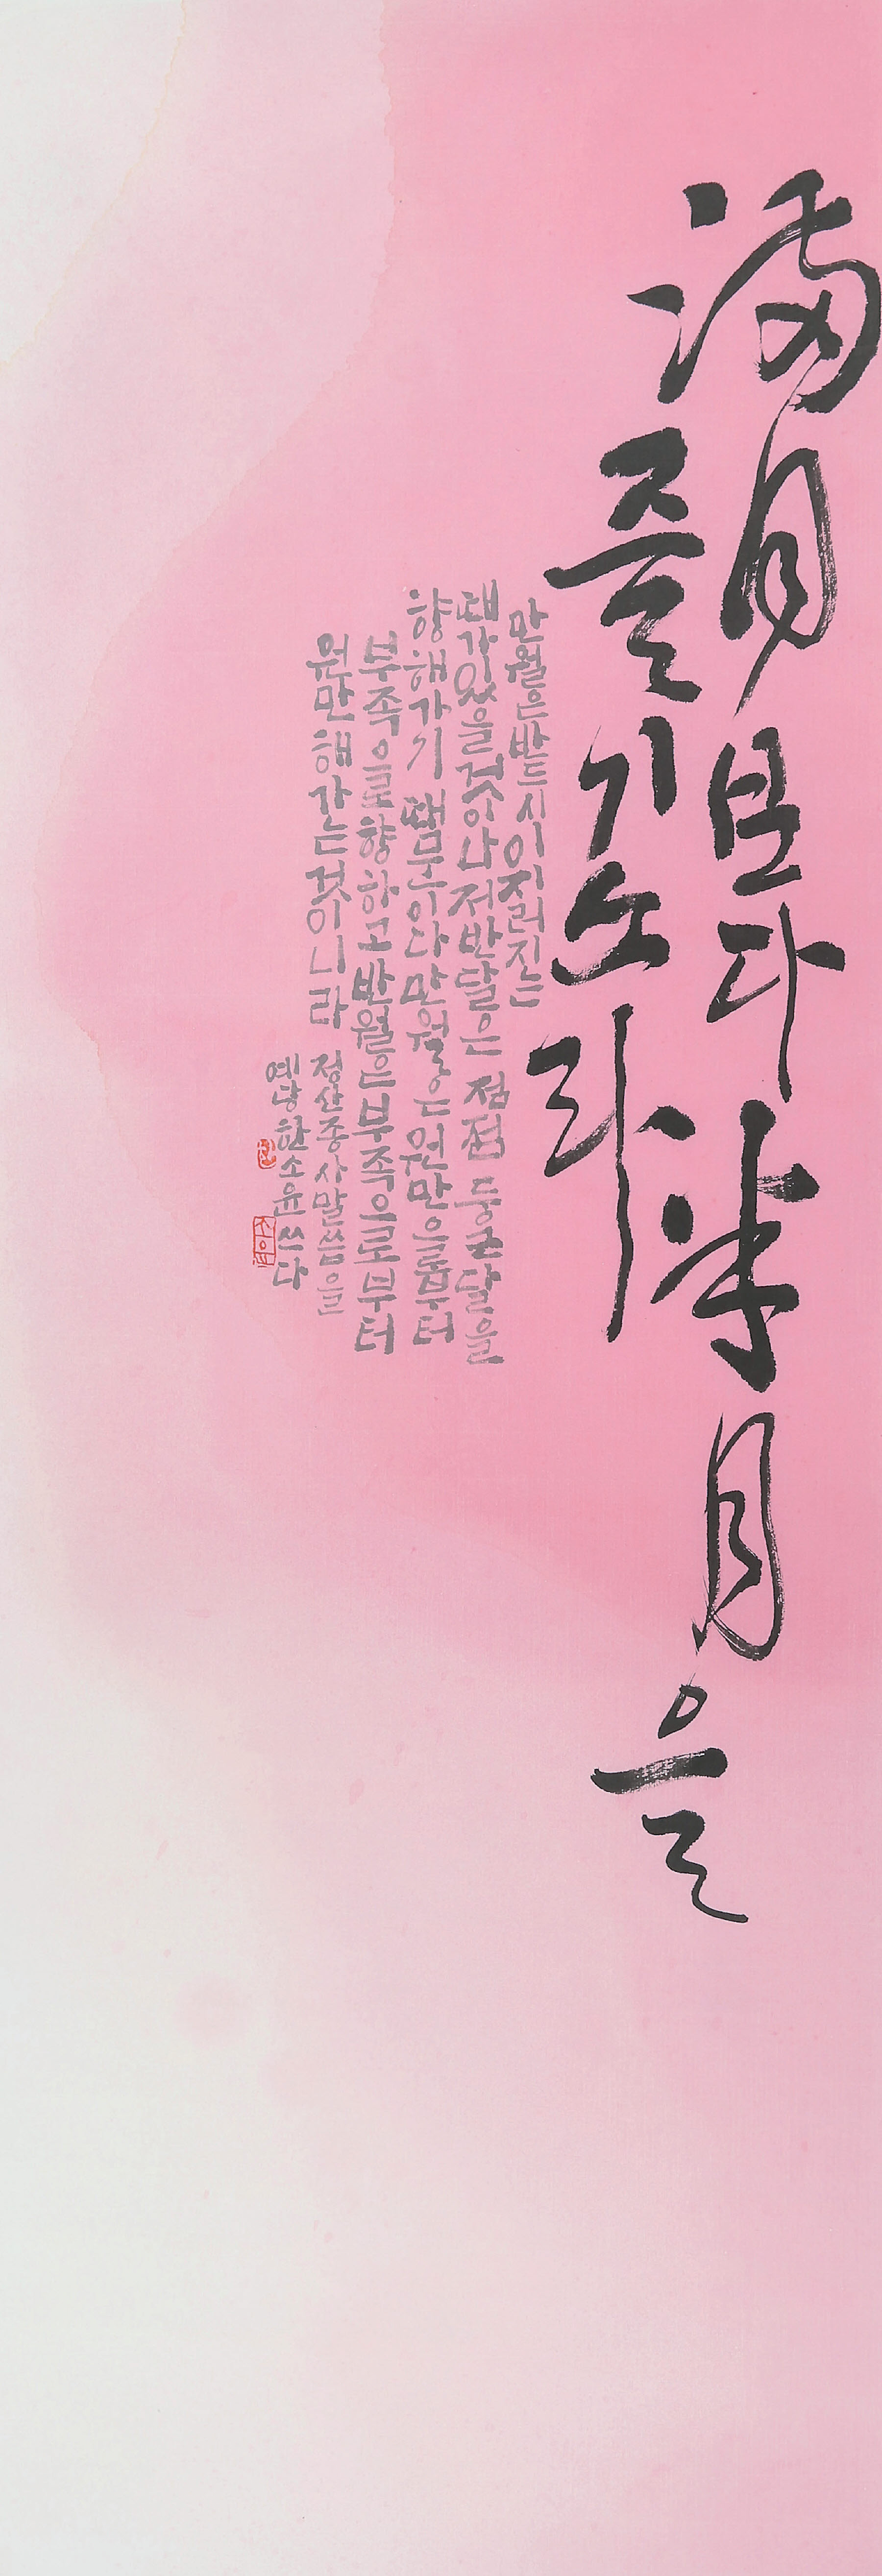 滿月보다 半月을
즐기노라
만월은 반드시 이지러지는
때가 있을 것이나 저 반달은 점점 둥근 달을
향해 가기 때문이다 만월은 원만으로부터
부족으로 향하고 반월은 부족으로부터
원만해가는 것이니라
정산종사 말씀을
예당 한소윤 쓰다